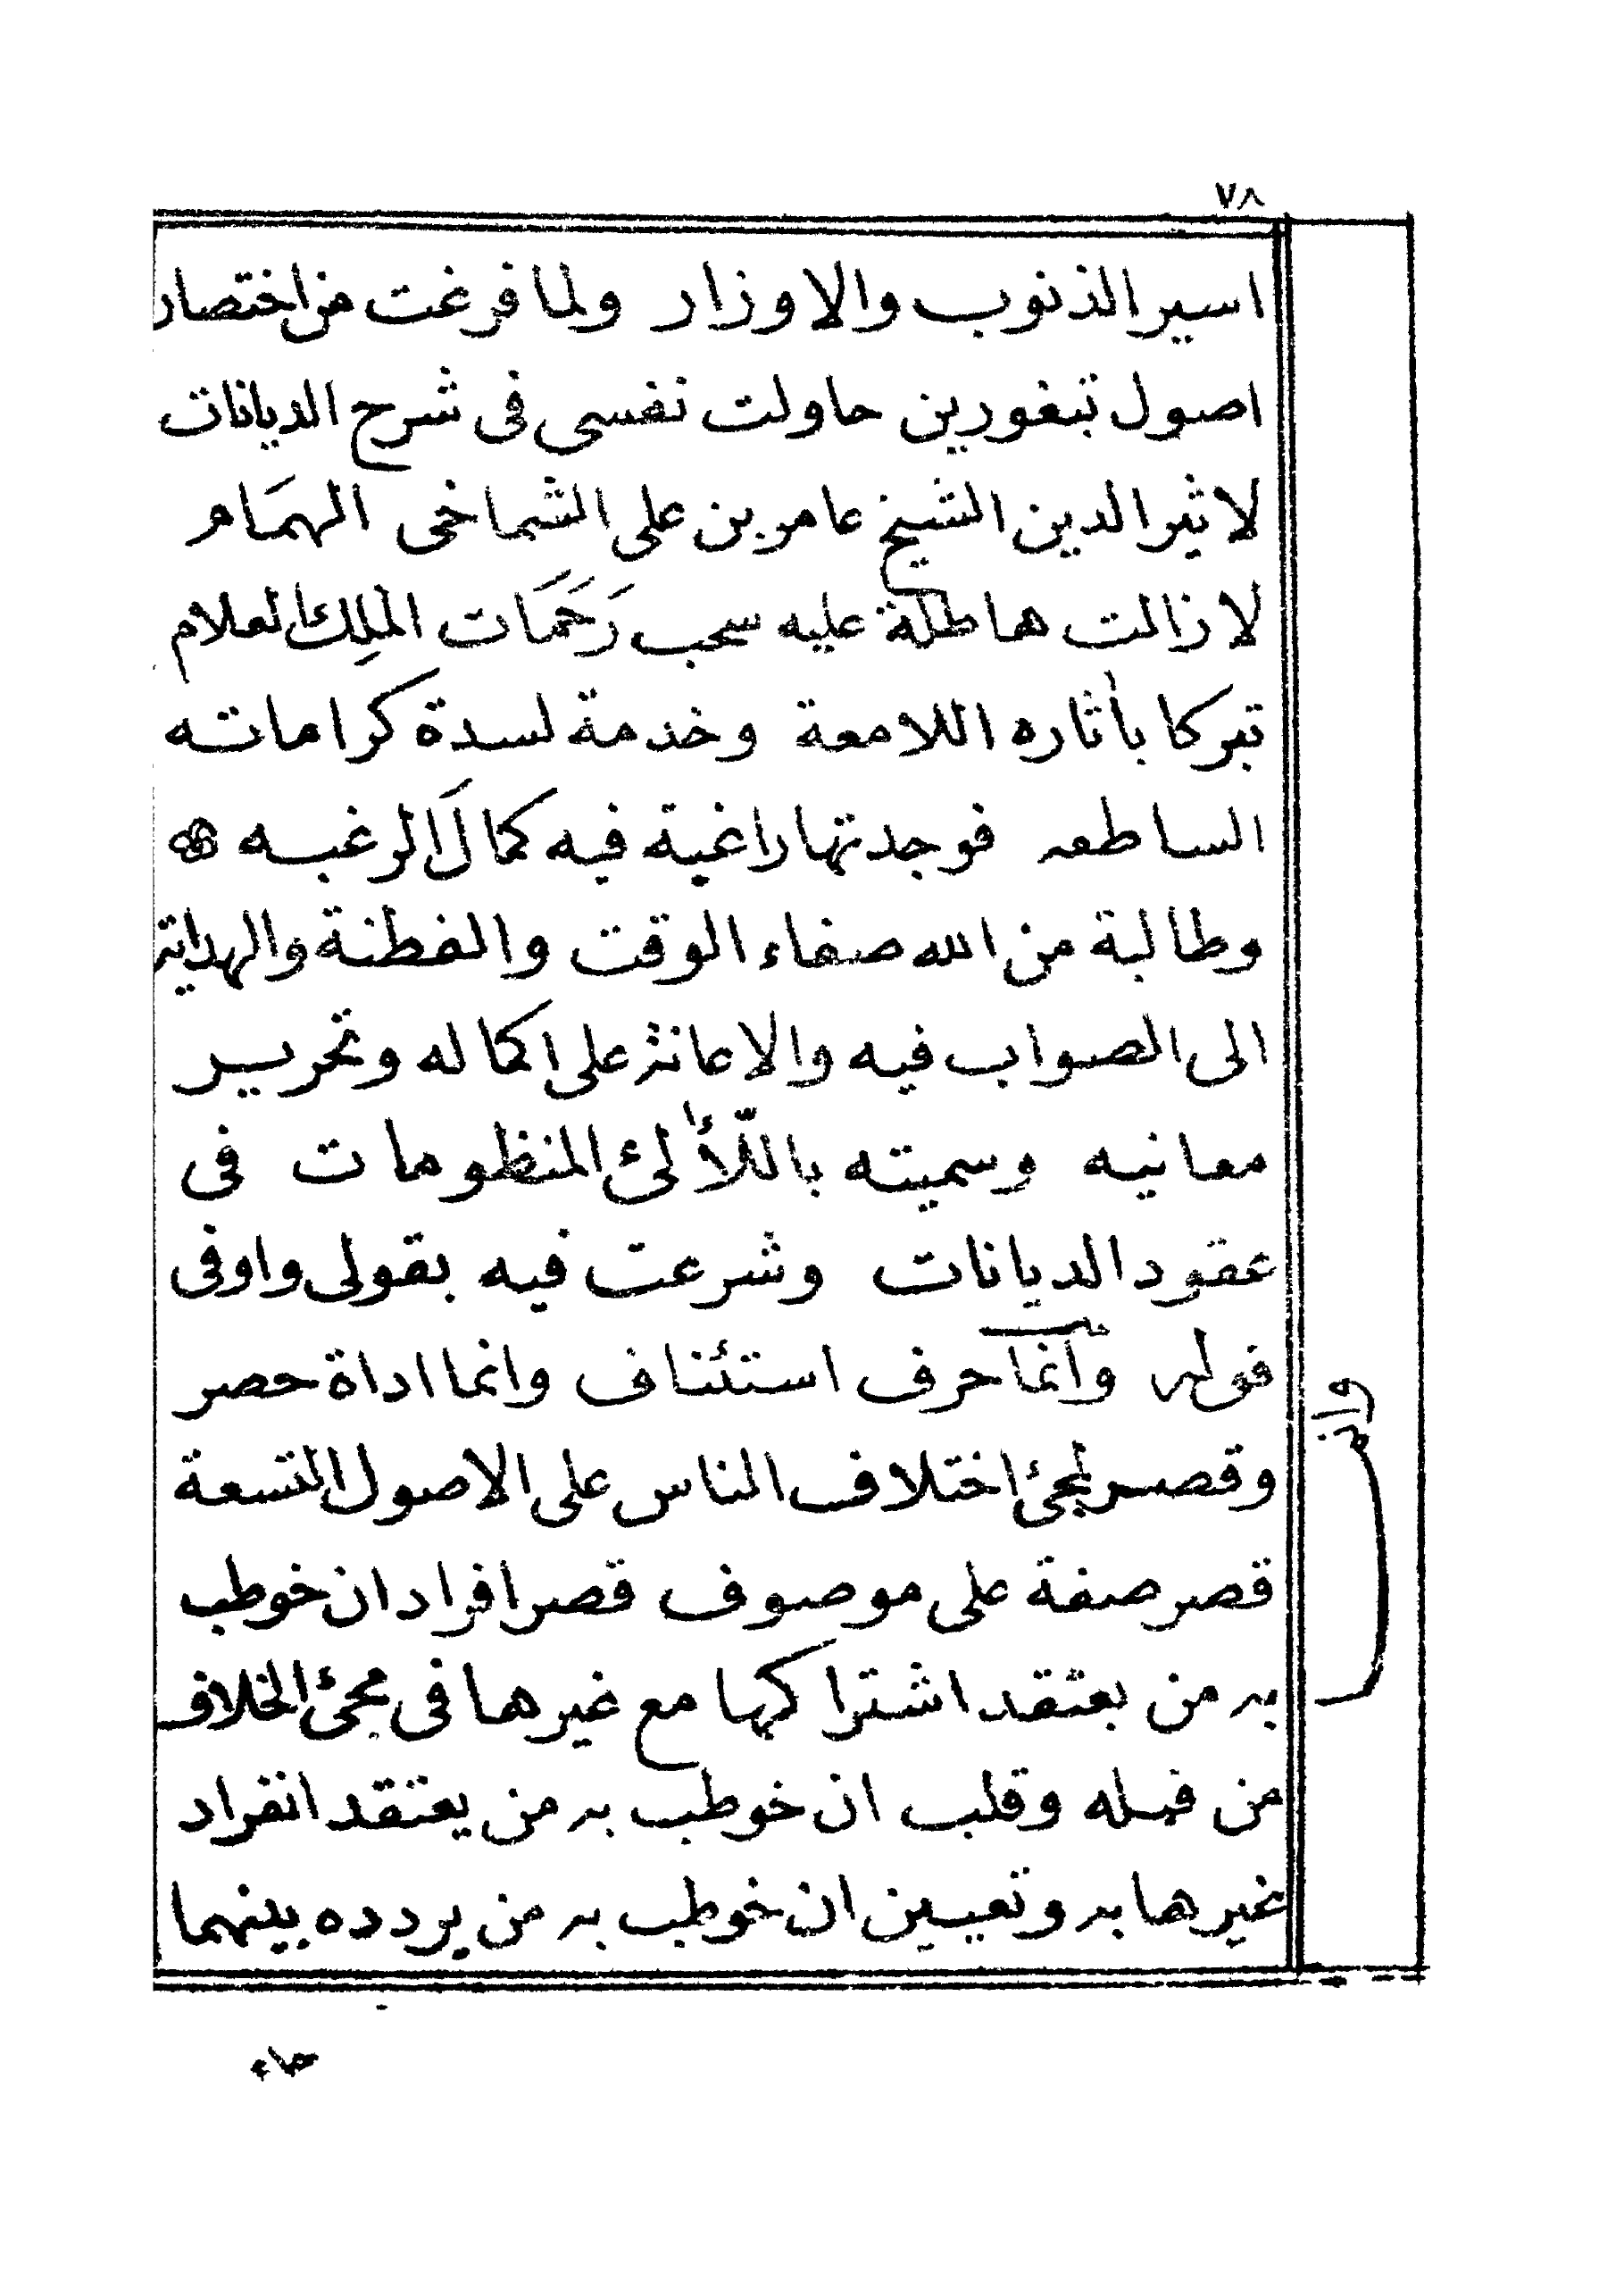 ٧٨
اسير الذنوب والاوزار ولما فرغت من اختصار
اصول تبغورين حاولت نفسى فى شرح الديانات
لاثير الدين الشيخ عامر بن على الشماخى الهمَام
لازالت هاطلة عليه سحب رَحَمَات الملِك العلام
تبركا بأثاره اللامعة وخدمة لسدة كراماته
الساطعه فوجدتها راغبة فيه كمالَ الرغبه
وطالبة من الله صفاء الوقت والفطنة والهداية
الى الصواب فيه والاعانة على اكماله وتحرير
معانيه وسميته باللّألئ المنظومات فى
عقود الديانات وشرعت فيه بقولى واوفى
قوله وانما حرف استئناف وانما اداة حصر
وقصر لمجئ اختلاف الناس على الاصول التسعة
قصر صفة على موصوف قصر افراد ان خوطب
به من يعتقد اشتراكها مع غيرها فى مجئ الخلاف
من قبله وقلب ان خوطب به من يعتقد انفراد
غيرها به وتعيين ان خوطب به من يردده بينهما
وانما